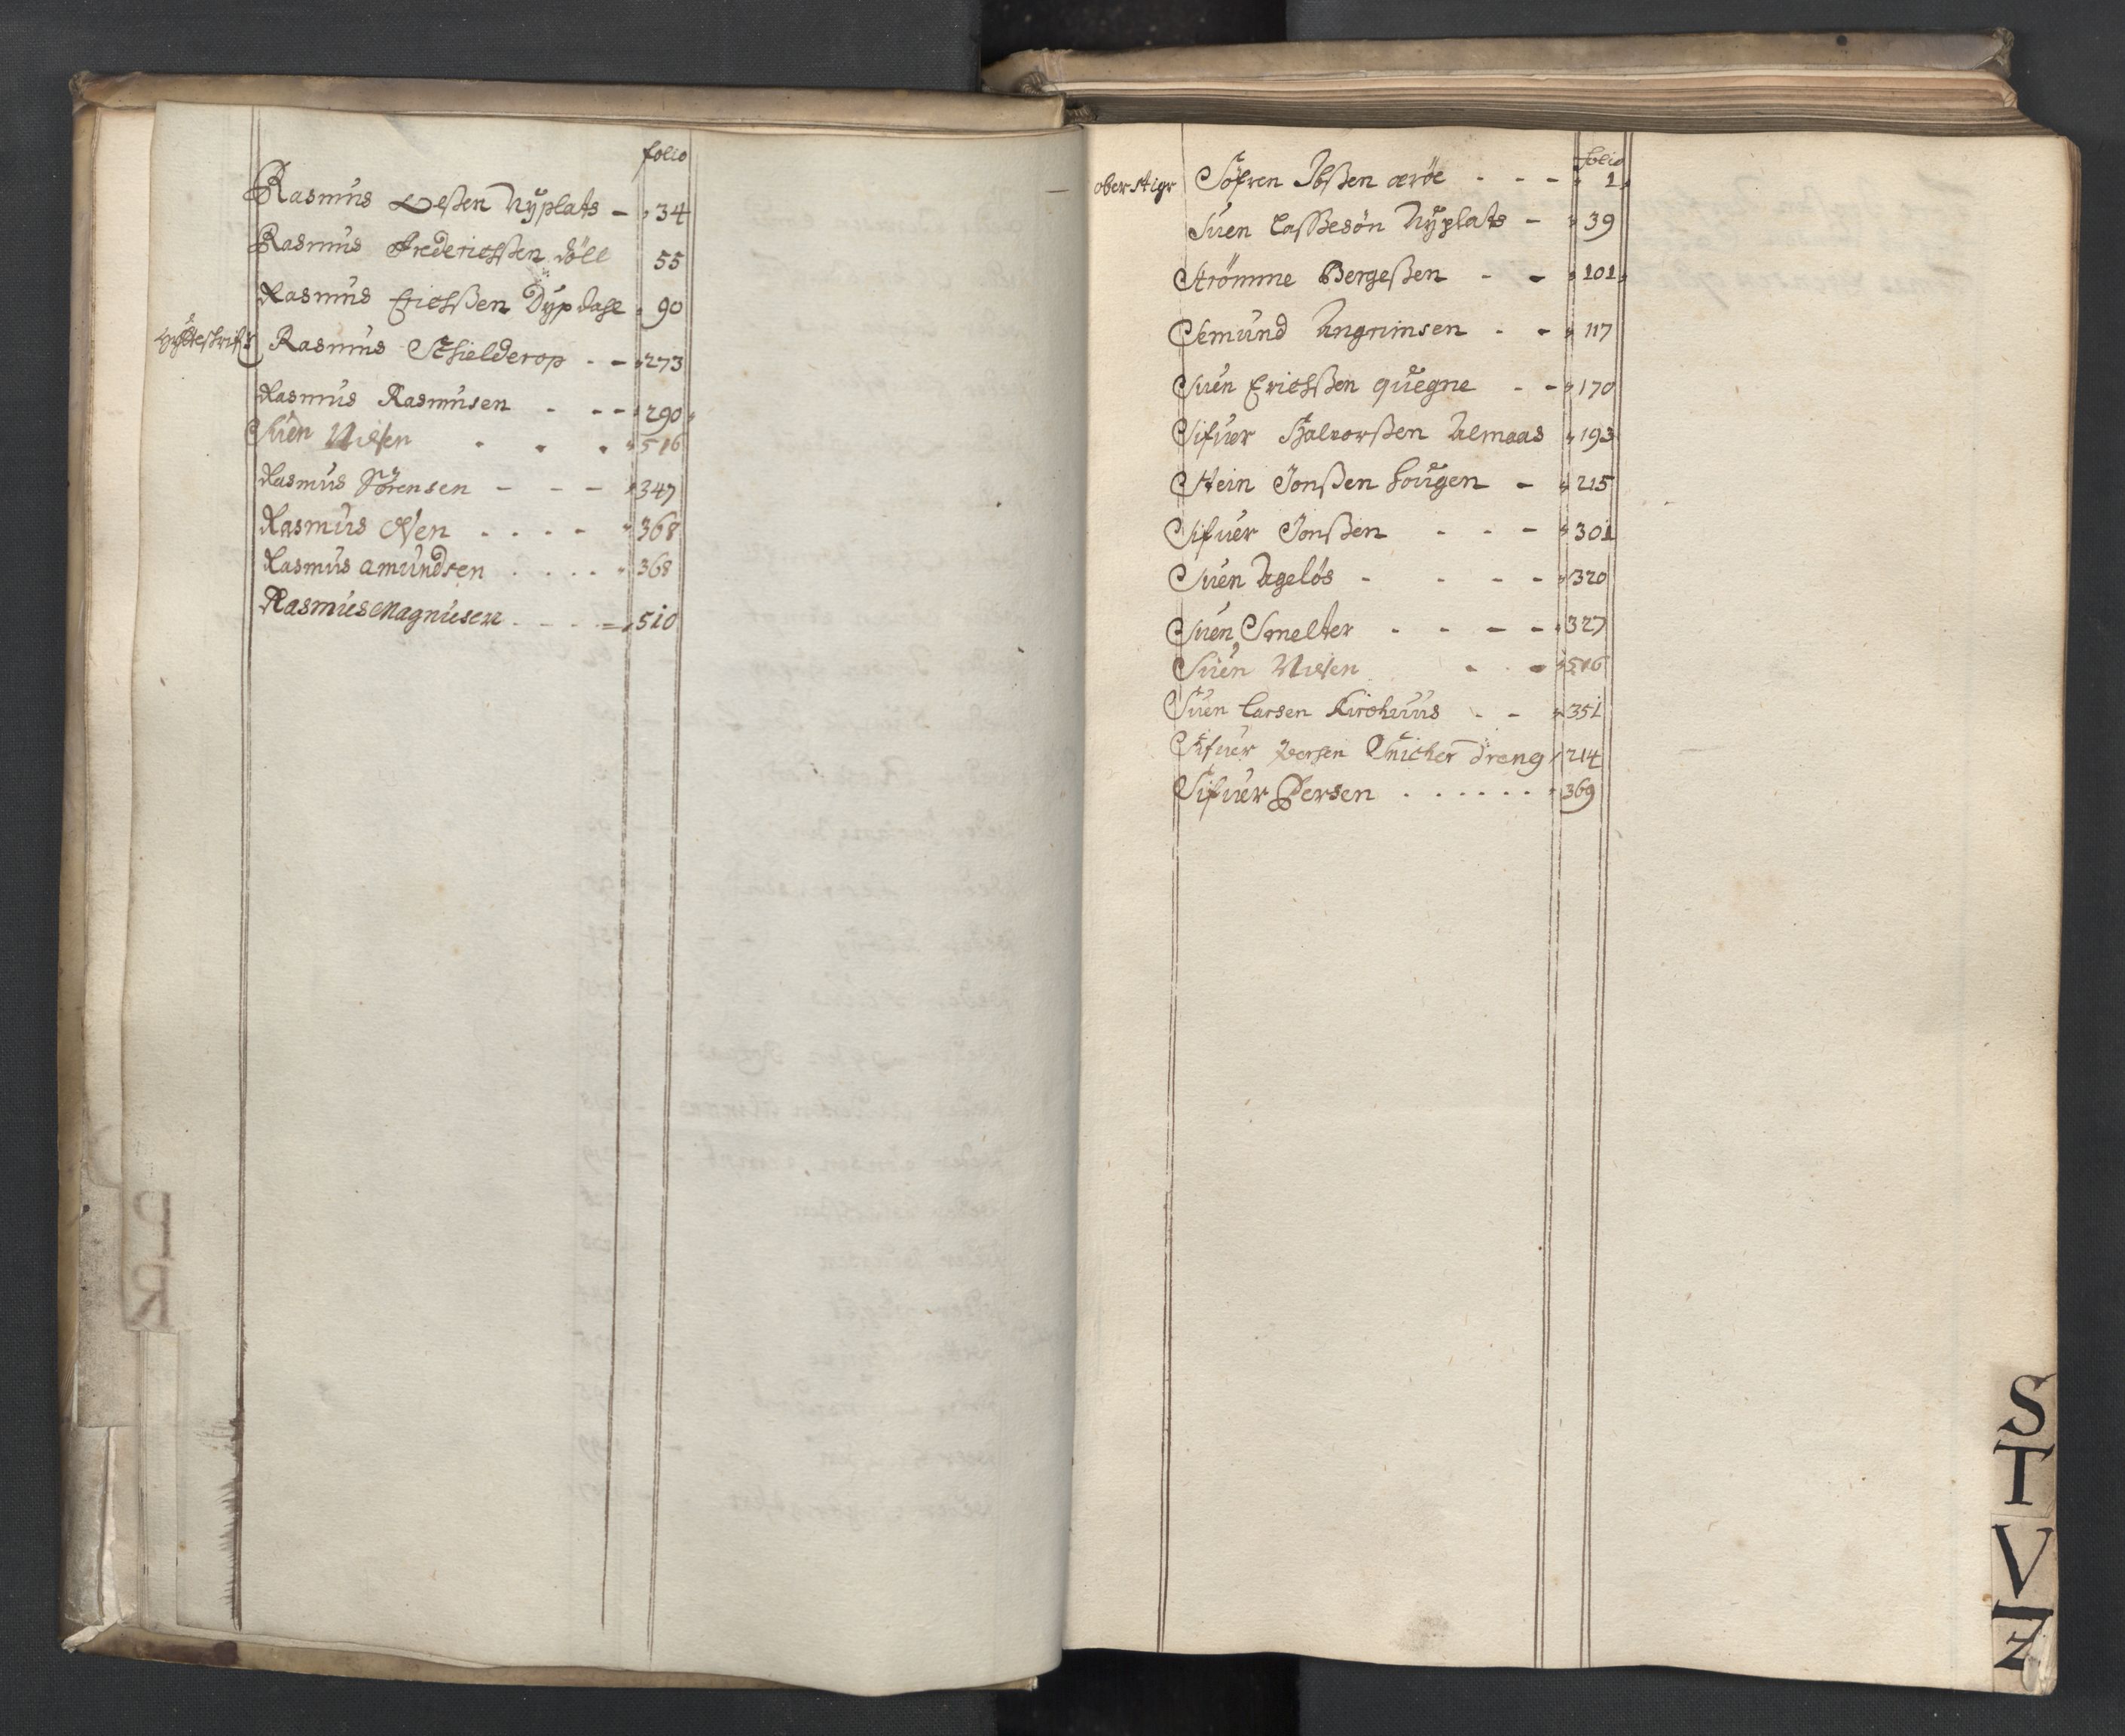 folio
Rasmus Oelßen Nÿplats - 34
Rasmus Frederichßen döll 55
Rasmus Erichßen Dÿpdahl 90
Hÿtteskrifr Rasmus Schielderop - - 273
Rasmus Rasmusen - - - 290
Suen Nilsen 516
Rasmus Sörensen - - - 347
Rasmus Olsen . . . - 368
Rasmus amundsen . . . . 368
Rasmus Magnusen . - - - 510
folio
oberstigr Söfren Ibßen æröe - - - 1
Suen Laßesön Nÿplats - 39
Strömme Bergeßen - - 101
Semund Angrimsen - - 117
Suen Erichßen quegne - - 170
Sifuer Halvorßen Almaas 193
Stein Jonßen Hougen - 215
Sifuer Jonßen - - - 301
Suen Ageløs - - - - 320
Suen Smelter - - - - 327
Suen Nilsen - - 516
Suen Larsen Kirchuus - - 351
Sifuer Iversen Snicker Dreng 214
Sifuer Persen . . . . . . 369
S
T
V
Z
P
R